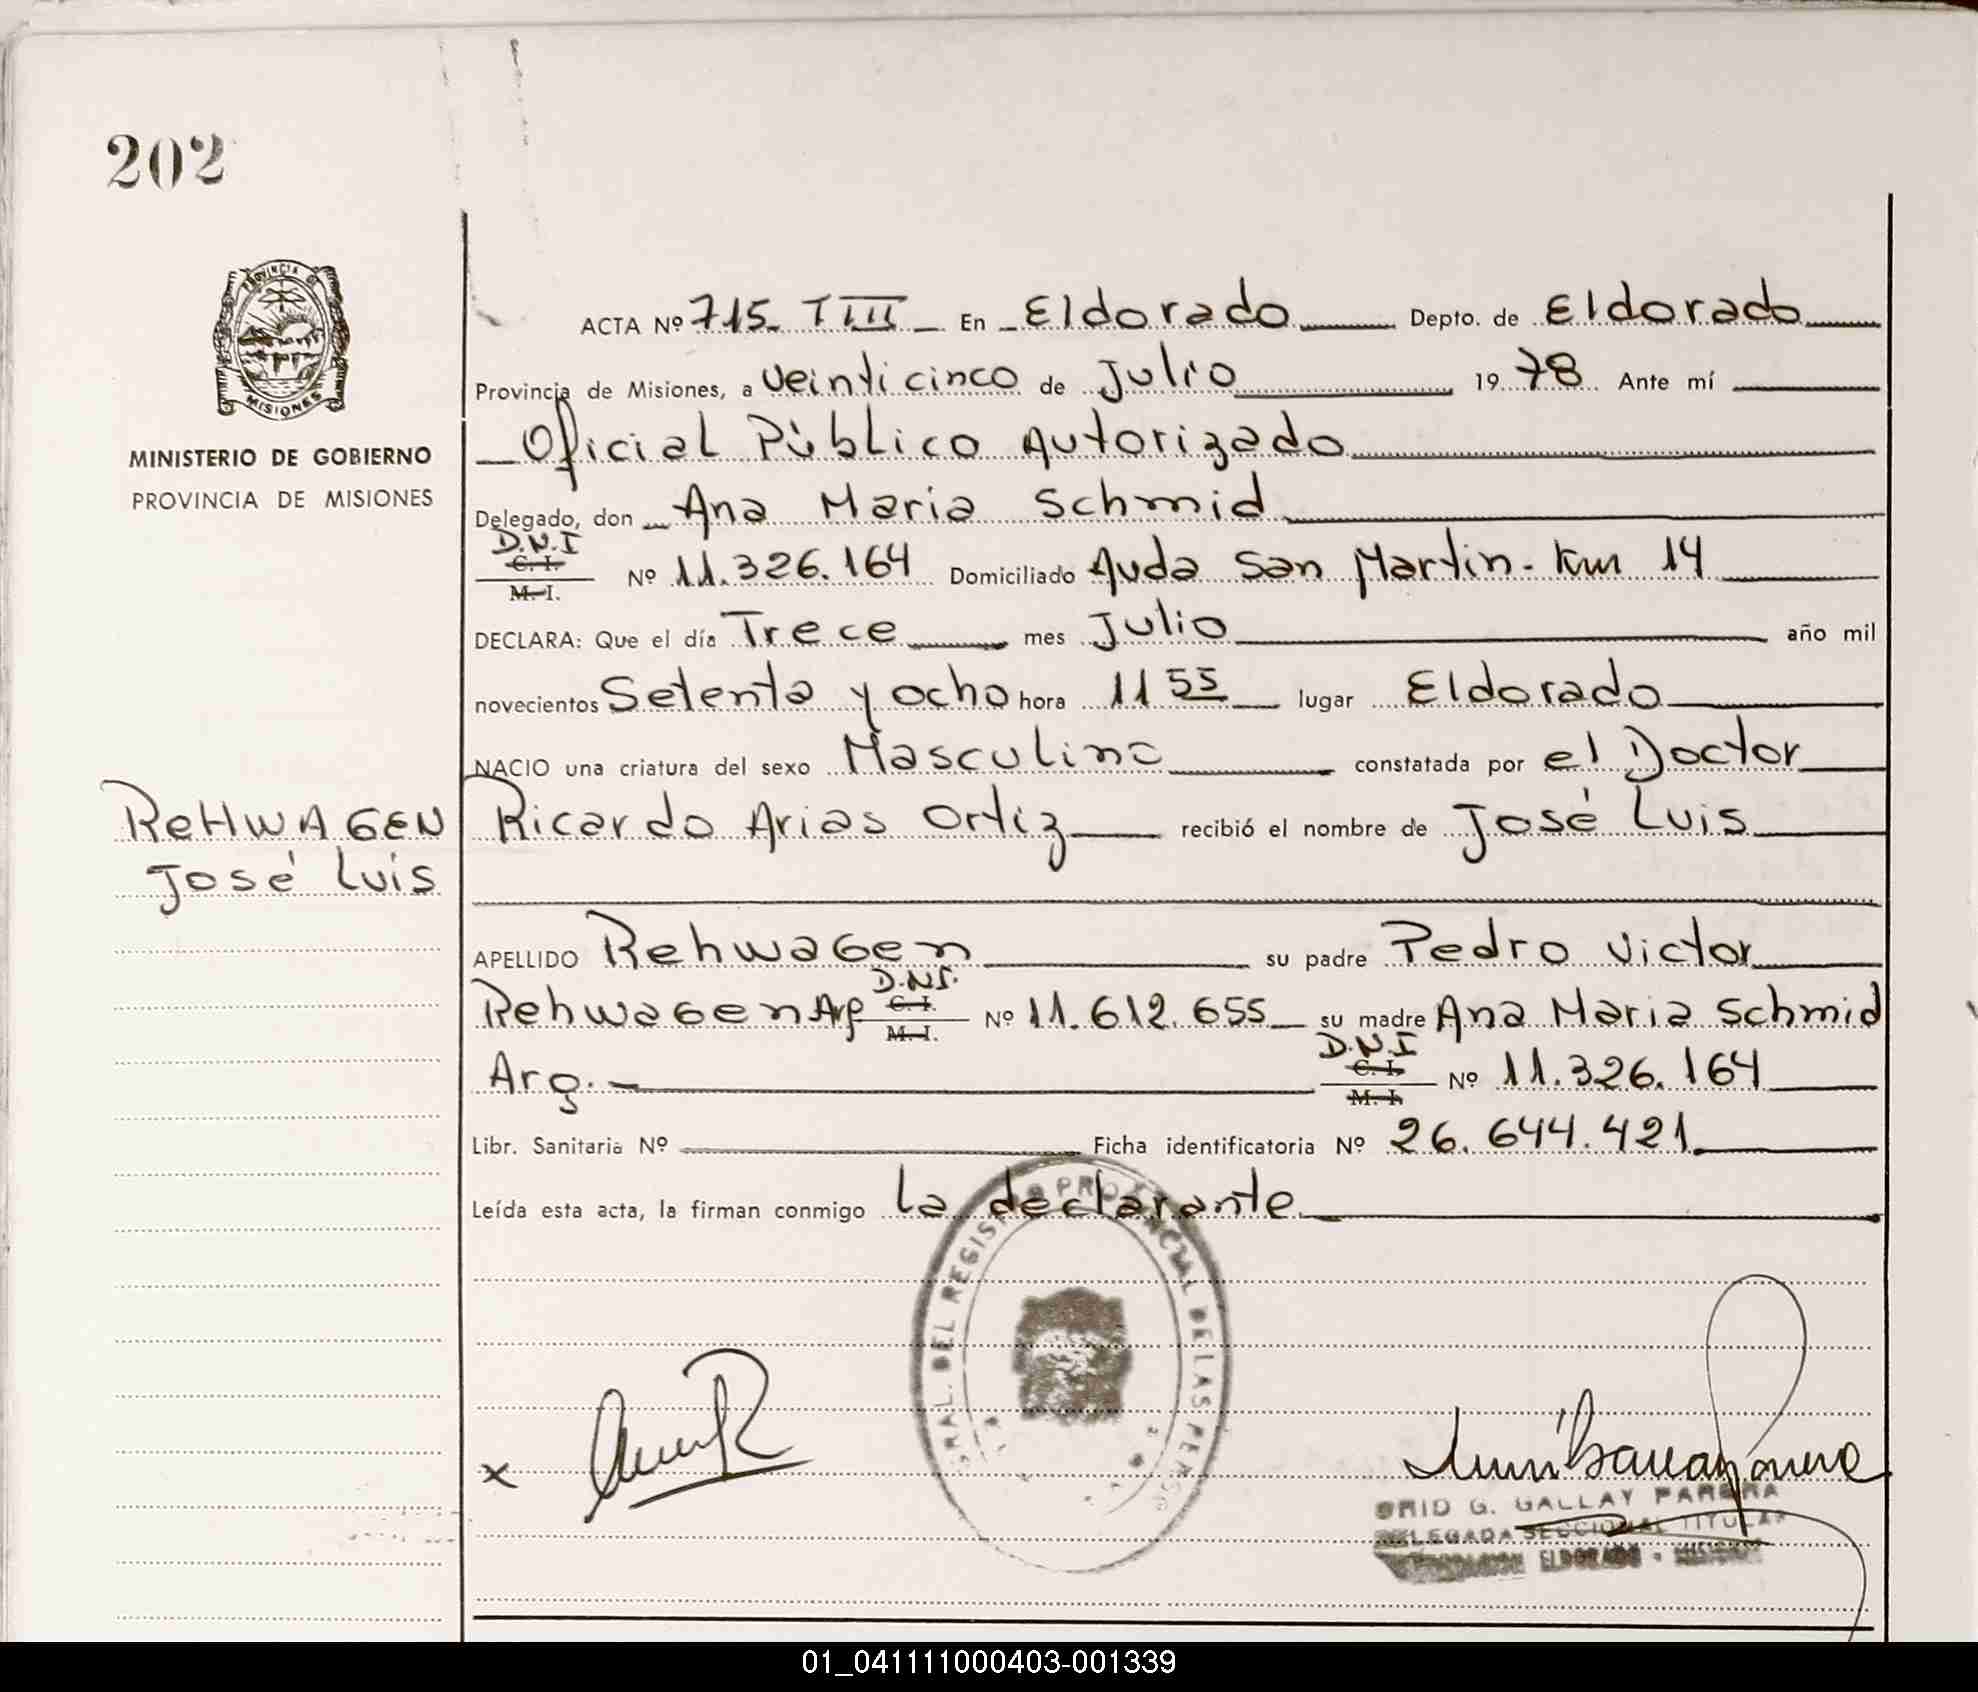 202
PROVINCIA DE
MISIONES
MINISTERIO DE GOBIERNO
PROVINCIA DE MISIONES
ReHWAGEN
José Luis
ACTA Nº 715 T III En Eldorado Depto. de Eldorado
Provincia de Misiones, a veinticinco de Julio 1978 Ante mí
Oficial Público Autorizado
Delegado, don Ana Maria Schmid
D.N.I
C. I.
M. I. Nº 11.326.164 Domiciliado Avda San Martin. Km 14
DECLARA: Que el día Trece mes Julio año mil
novecientos Setenta y ocho hora 11 55 lugar Eldorado
NACIO una criatura del sexo Masculino constatada por el Doctor
Ricardo Arias Ortiz recibió el nombre de José Luis
APELLIDO Rehwagen su padre Pedro Victor
Rehwagen Arg D.N.I.
C. I.
M. I. Nº 11.612.655 su madre Ana Maria Schmid
Arg. D.N.I
C. I.
M. I. Nº 11.326.164
Libr. Sanitaria Nº Ficha identificatoria Nº 26.644.421
Leída esta acta, la firman conmigo la declarante
GRAL. DEL REGISTRO PROVINCIAL DE LAS PERSO
x
BRID G. GALLAY PARERA
DELEGADA SECCIONAL TITULAR
ELDORADO - MISIONES
01_041111000403-001339